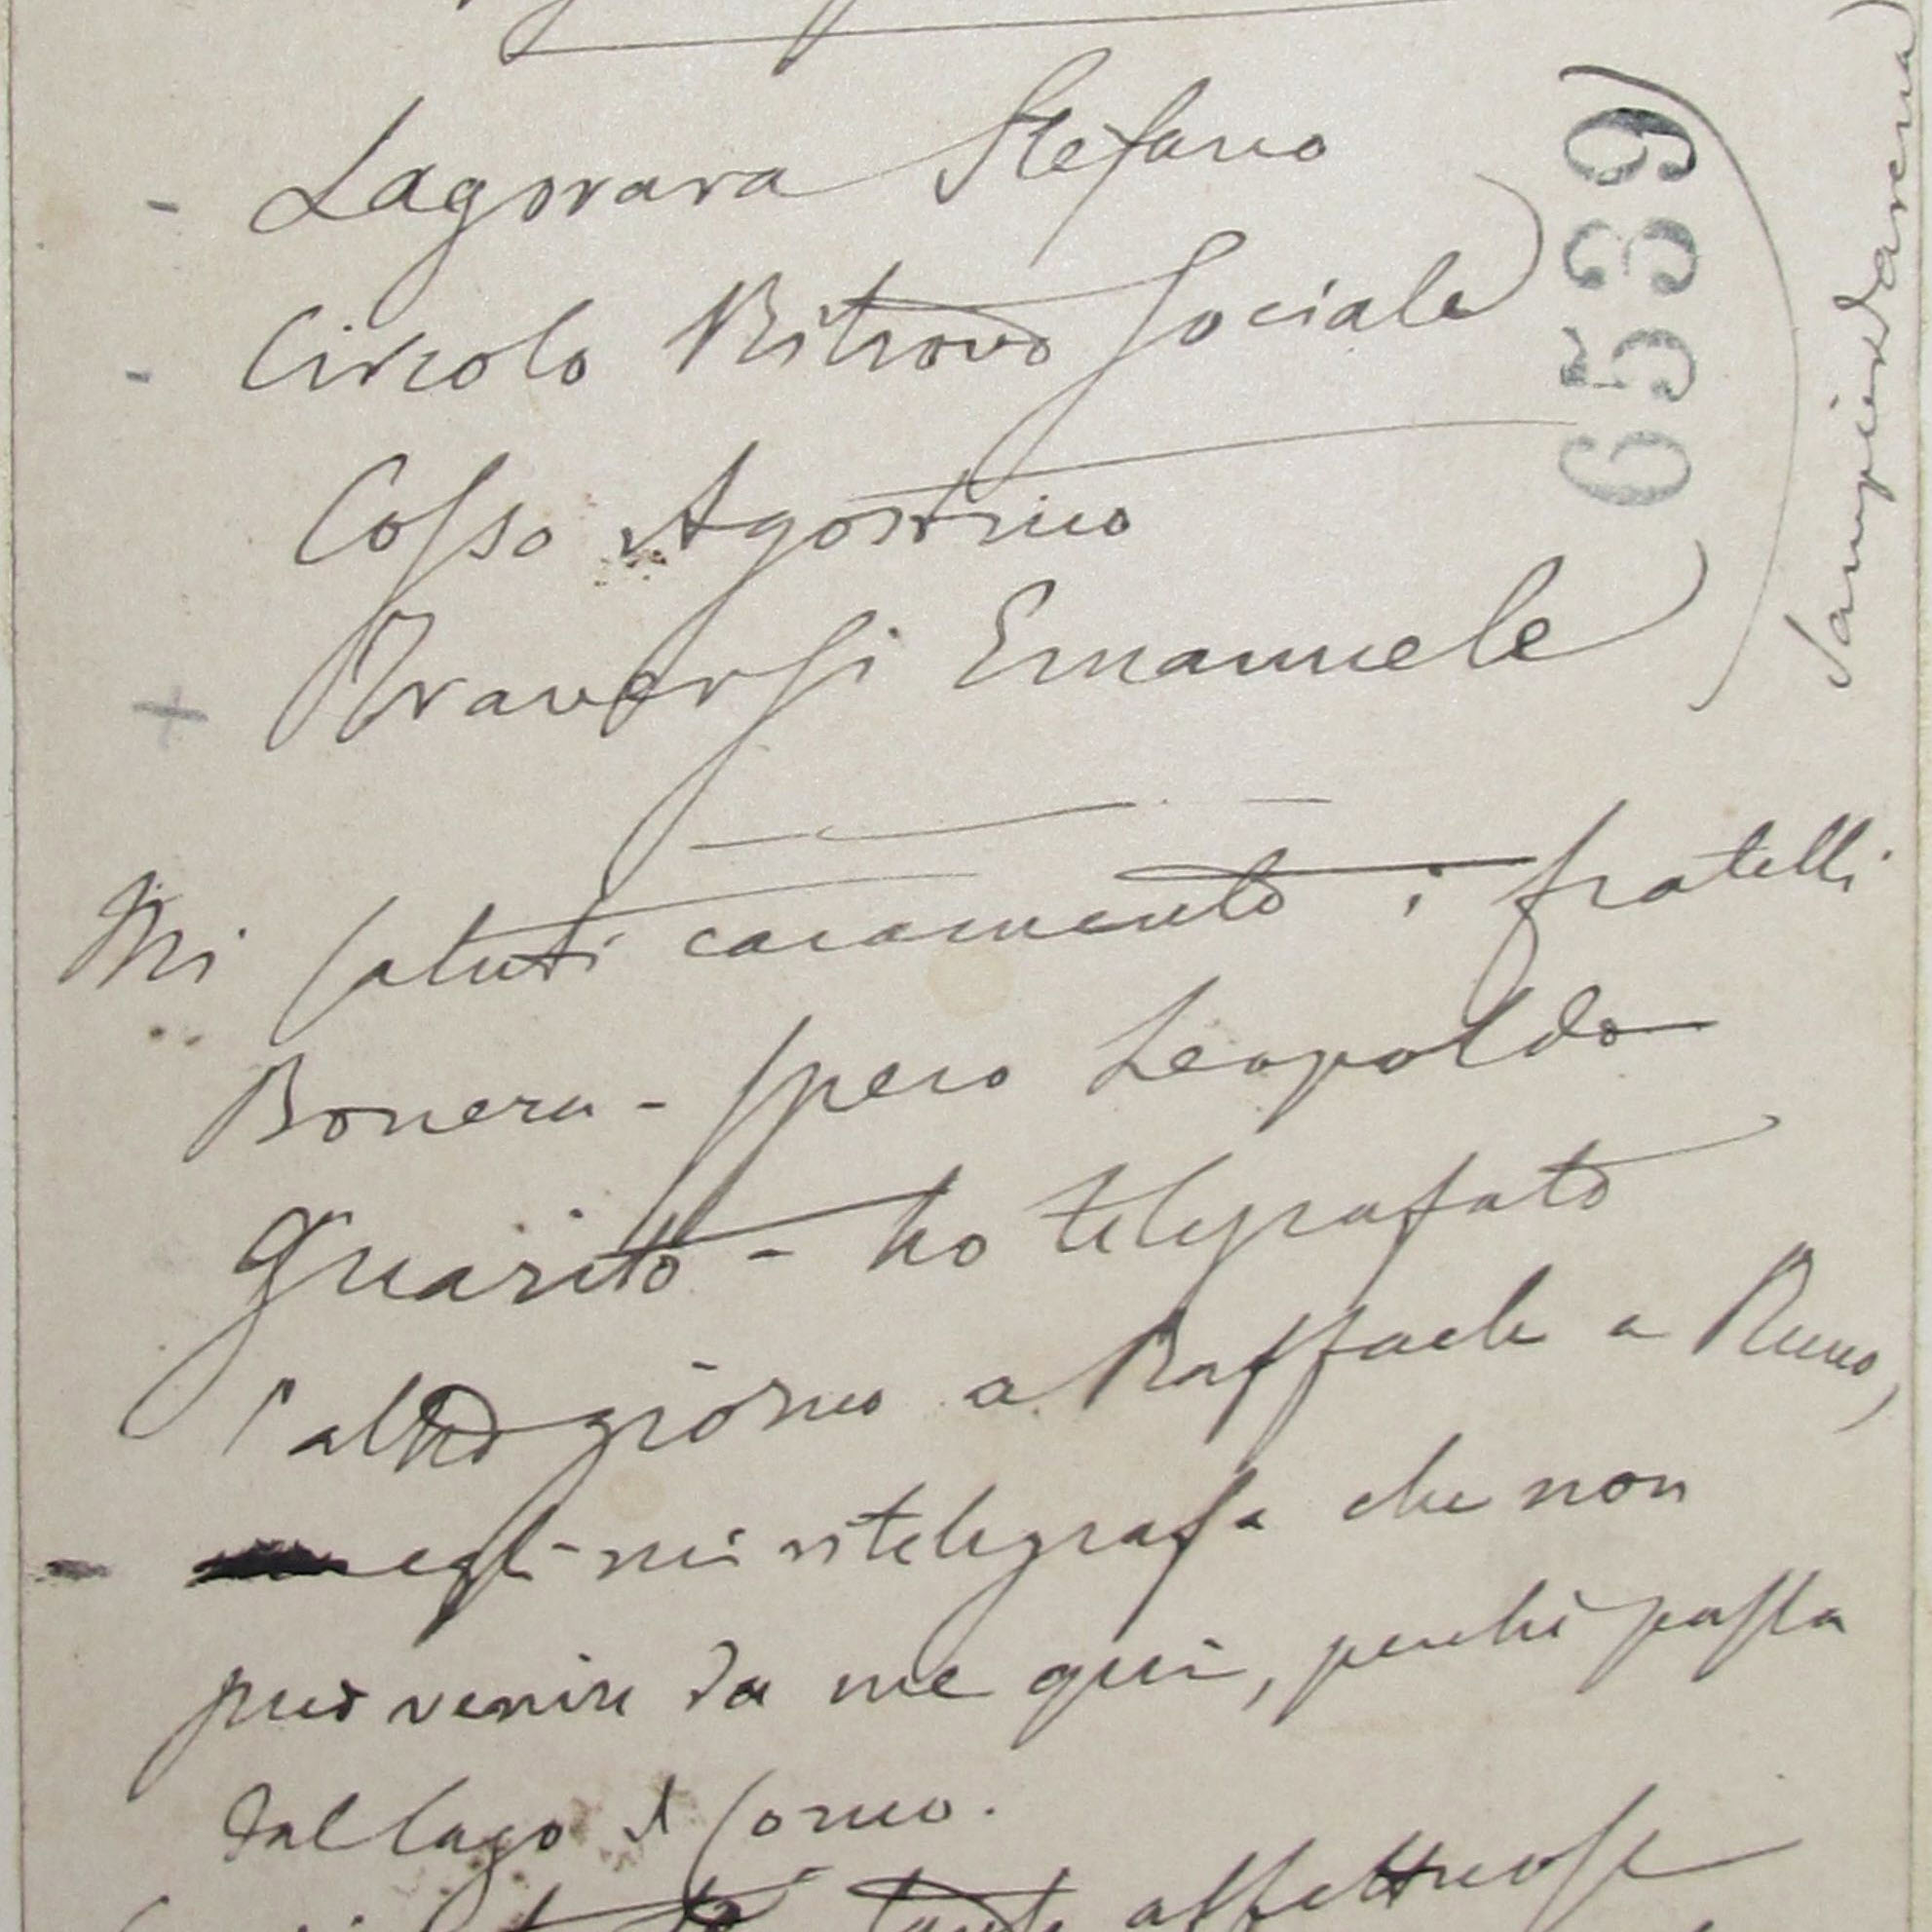 - Lagorara Stefano
- Circolo Ritrovo Sociale
Cosso Agostino
+ Traversi Emanuele
Sampierdarena
6539
Mi saluti caramente i fratelli
Bonera - spero Leopoldo
guarito - ho telegrafato
l'altro giorno a Raffaele a
egli mi ritelegrafa che non
può venire da me qui, perchè passa
dal lago di Como.
tante affettuose